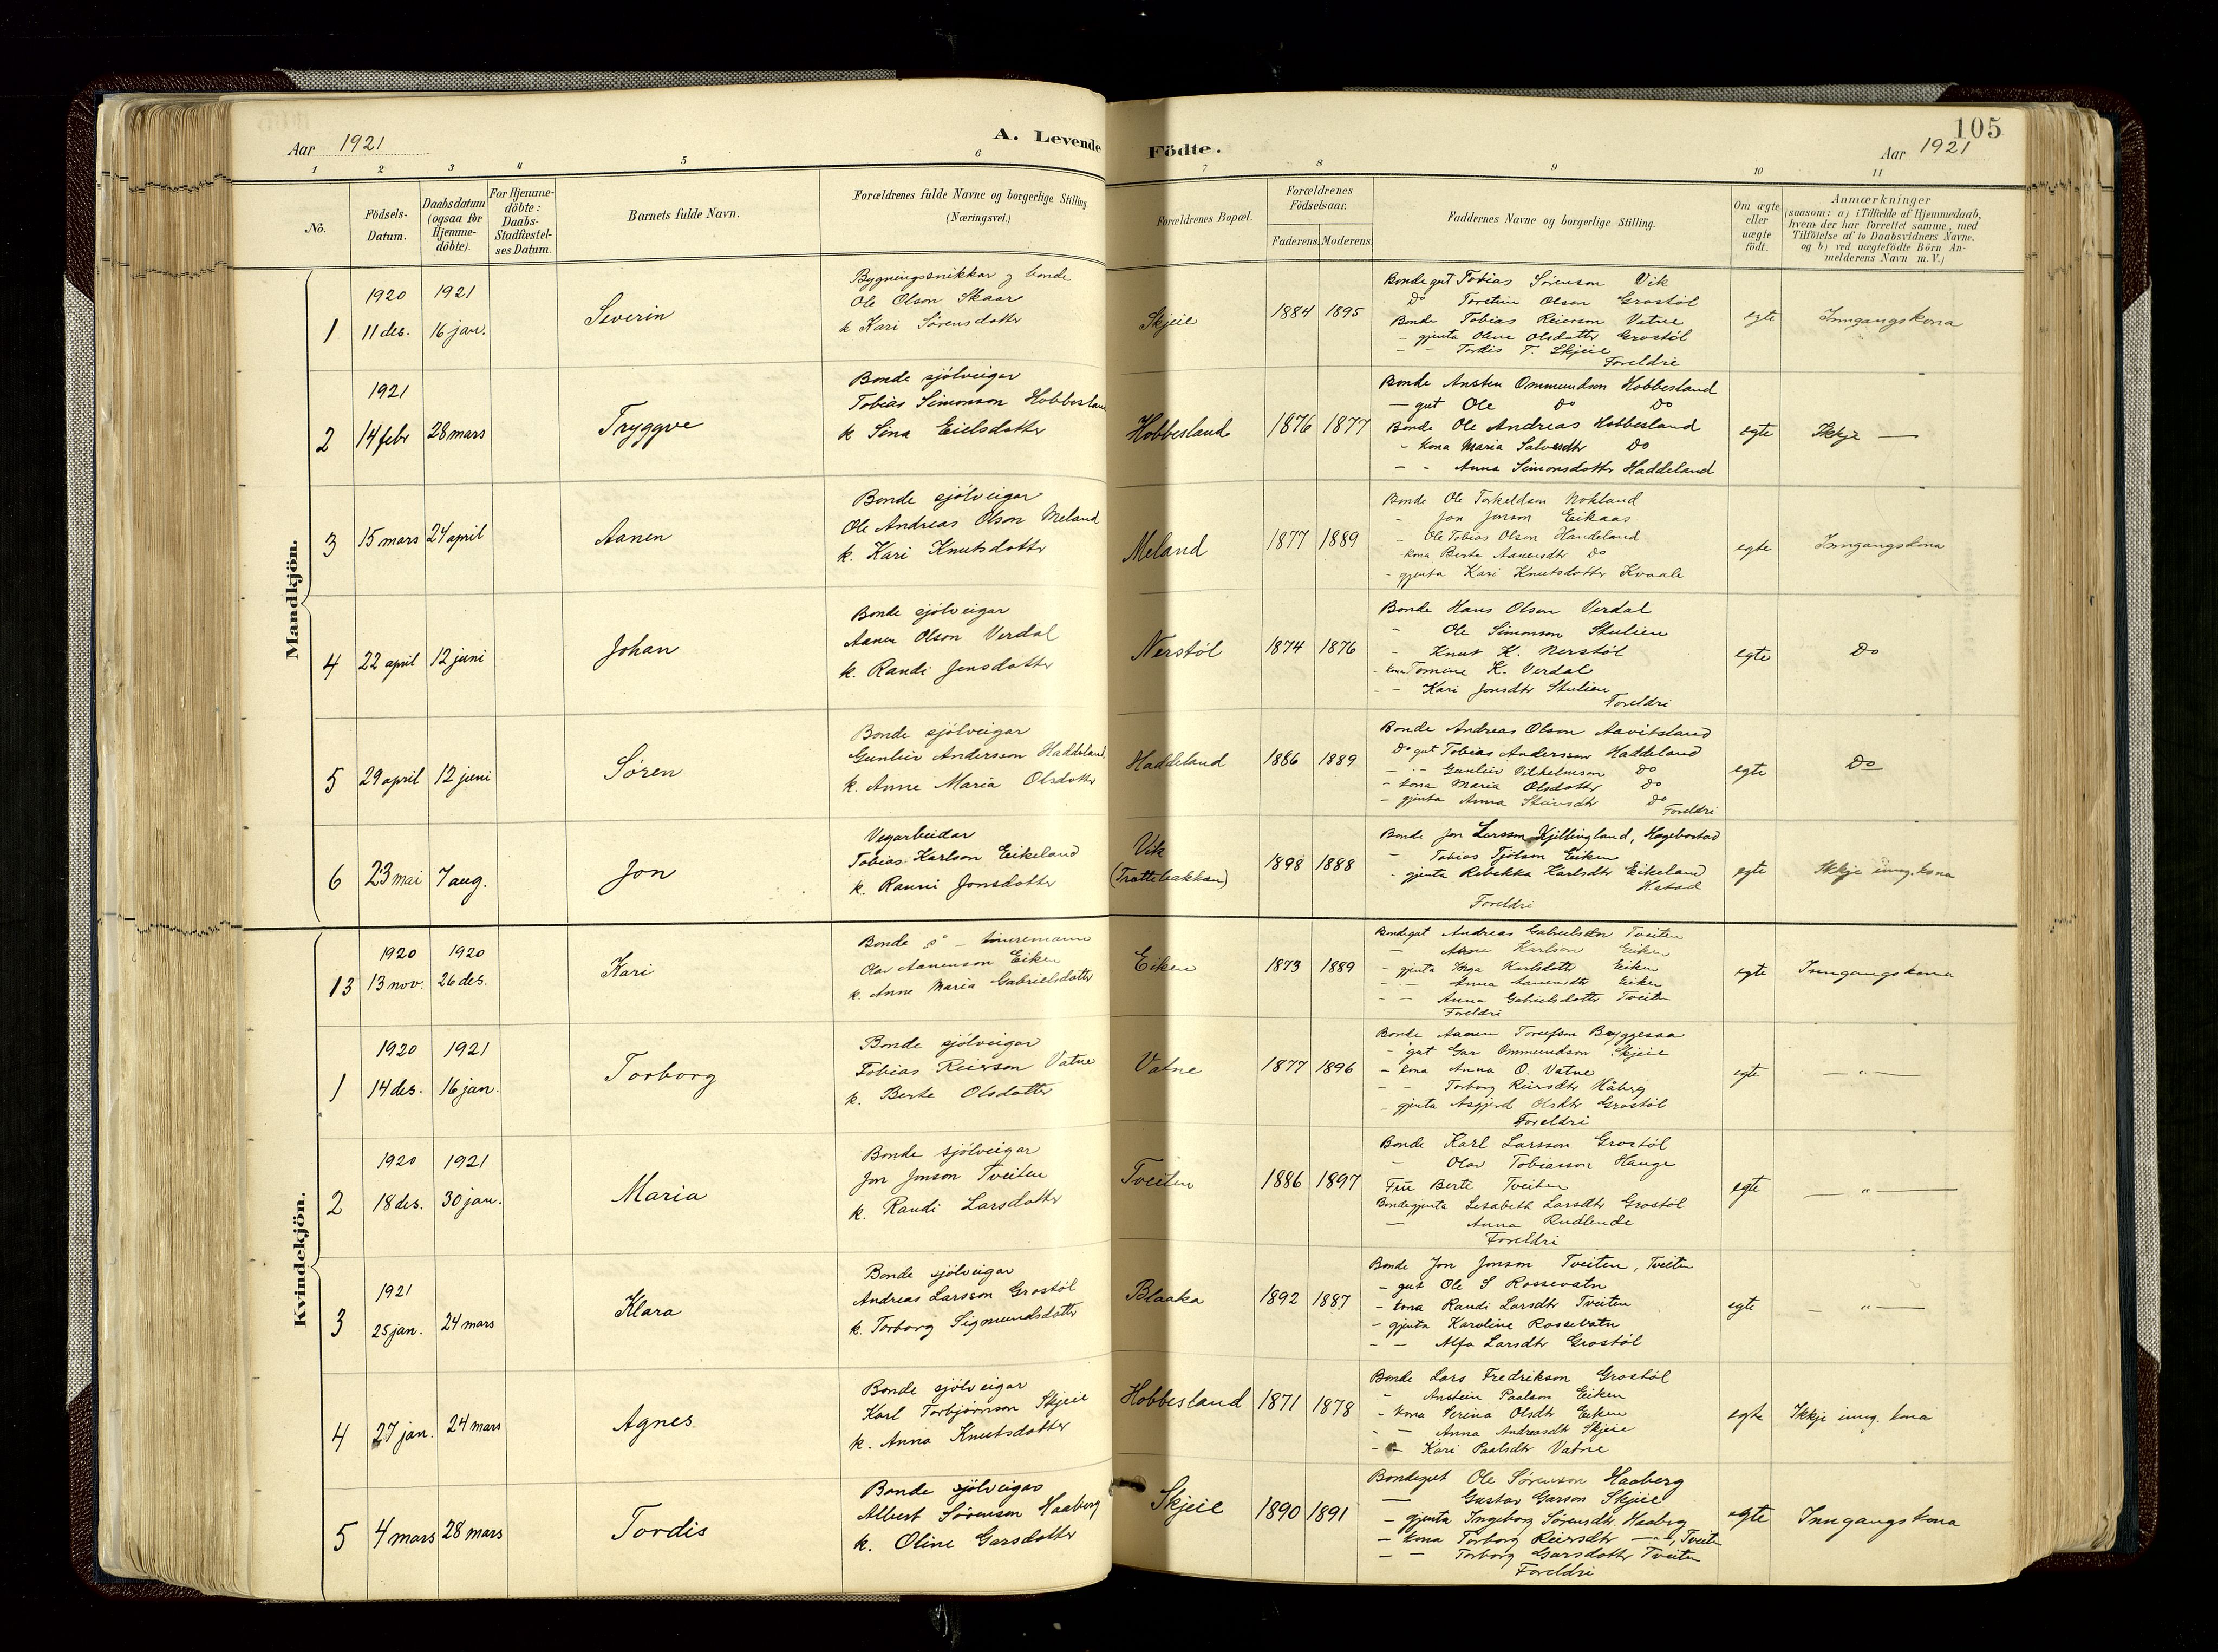 105
Aar 1921
A. Levende Födte.
Aar 1921
1 2 3 4 5 6 7 8 9 10 11
No.
Födsels-Datum.
Daabsdatum (ogsaa for Hjemme-döbte).
For Hjemme-döbte: Daabs-Stadfæstel-ses Datum.
Barnets fulde Navn.
Forældrenes fulde Navne og borgerlige Stilling. (Næringsvei.)
Forældrenes Bopæl.
Forældrenes Födselsaar.
Faderens. Moderens.
Faddernes Navne og borgerlige Stilling.
Om ægte eller uægte födt.
Anmærkninger
(saasom: a) i Tilfælde af Hjemmedaab,
hvem der har forrettet samme, med
Tilföielse af to Daabsvidners Navne.
og b) ved uægtefödte Börn An-
melderens Navn m. V.)
Mandkjön.
1
1920 11 des.
1921 16 jan.
Severin
Bygningssnikkar og bonde
Ole Olson Skaar
k Kari Sørensdotter
Skjeie
1884 1895
Bondegut Tobias Sørenson Vik
Do Torstein Olson Grostøl
Bonde Tobias Reierson Vatne
- gjenta Olene Olsdotter Grostøl
- - Tordis T. Skjeie
Foreldri
egte
Inngangskona
2
1921 14 febr
28 mars
Tryggve
Bonde sjölveigar
Tobias Simonson Hobbesland
k Sina Eielsdotter
Hobbesland
1876 1877
Bonde Ansten Ommundson Hobbesland
- gut Ole Do Do
Bonde Ole Andreas Hobbesland
- kona Maria Salvesdtr Do
- - Anna Simonsdotter Haddeland
egte
Ikkje —
3
15 mars
24 april
Aanen
Bonde sjölveigar
Ole Andreas Olson Meland
k. Kari Knutsdotter
Meland
1877 1889
Bonde Ole Torkeldson Nokland
- Jon Jonson Eikaas
- Ole Tobias Olson Handeland
kona Berte Aanensdtr Do
- gjenta Kari Knutsdotter Kvaale
egte
Inngangskona
4
22 april
12 juni
Johan
Bonde sjölveigar
Aanen Olson Verdal
k. Randi Jonsdotter
Nerstøl
1874 1876
Bonde Hans Olson Verdal
- Ole Simonson Stulien
- Knut K. Nerstøl
- kona Tomine K. Verdal
- - Kari Jonsdtr Stulien
Foreldri
egte
Do
5
29 april
12 juni
Søren
Bonde sjölveigar
Gunleiv Andersson Haddeland
k. Anne Maria Olsdotter
Haddeland
1886 1889
Bonde Andreas Olson Aavitsland
Do gut Tobias Andersson Haddeland
- - Gunleiv Vilhelmson Do
- kona Maria Olsdotter Do
- gjenta Anna Do
Foreldri
egte
Do
6
23 mai
7 aug.
Jon
Vegarbeidar
Tobias Karlson Eikeland
k. Ranni Jonsdotter
Vik
(Trottebakkan)
1898 1888
Bonde Jon Larsson Kjillingland, Hægebostad
- Tobias Tjölson Eiken
- gjenta Rebekka Karlsdtr Eikeland
Foreldri
egte
Ikkje inng. kona
Kvindekjön.
13
1920 13 nov.
1920 26 des.
Kari
Bonde
Olav Aanenson Eiken
k. Anne Maria Gabrielsdotter
Eiken
1873 1889
Bondegut Andreas Gabrielsson Tveiten
- Karlson Eiken
- gjenta Inga Karlsdotter Eiken
- - Anna Aanensdtr Eiken
- - Anna Gabrielsdotter Tveiten
Foreldri
egte
Inngangskona
1
1920 14 des.
1921 16 jan.
Torborg
Bonde sjölveigar
Tobias Reierson Vatne
k. Berte Olsdotter
Vatne
1877 1896
Bonde Aanen Byggesaa
- gut Gar Ommundson Skjeie
- kona Anna O. Vatne
- - Torborg Reiersdtr Håberg
- gjenta Asgjerd Olsdtr Grostöl
Foreldri
egte
— " —
2
1920 18 des.
1921 30 jan.
Maria
Bonde sjölveigar
Jon Jonson Tveiten
k. Randi Larsdotter
Tveiten
1886 1897
Bonde Karl Larsson Grostöl
- Olav Tobiasson Hauge
Frú Berte Tveiten
Bondegjenta Lisabeth Larsdtr Grostöl
— Anna Rudlende
Foreldri
egte
— " —
3
1921 25 jan.
24 mars
Klara
Bonde sjölveigar
Andreas Larsson Grostöl
k. Torborg Sigmundsdotter
Blaaka
1892 1887
Bonde Jon Jonson Tveiten, Tveiten
- gut Ole S Rossevatn
- kona Randi Larsdtr Tveiten
- gjenta Karoline Rossevatn
- - Alfa Larsdtr Grostöl
egte
— " —
4
27 jan.
24 mars
Agnes
Bonde sjölveigar
Karl Torbjørnson Skjeie
k. Anna Knutsdotter
Hobbesland
1871 1878
Bonde Lars Fredrikson Grostöl
- Anstein Paalson Eiken
- kona Serina Olsdtr Eiken
- - Anna Andreasdtr Skjeie
- - Kari Paalsdtr Vatne
egte
Ikkje inng. kona
5
4 mars
28 mars
Tordis
Bonde sjölveigar
Albert Sørenson Haaberg
k. Oline Garsdotter
Skjeie
1890 1891
Bondegut Ole Sørenson Haaberg
— Gustav Garson Skjeie
- gjenta Ingeborg Sørensdtr Haaberg
- kona Torborg Reiersdtr — " —, Tveiten
- - Torborg Garsdotter Tveiten
Foreldri
egte
Inngangskona